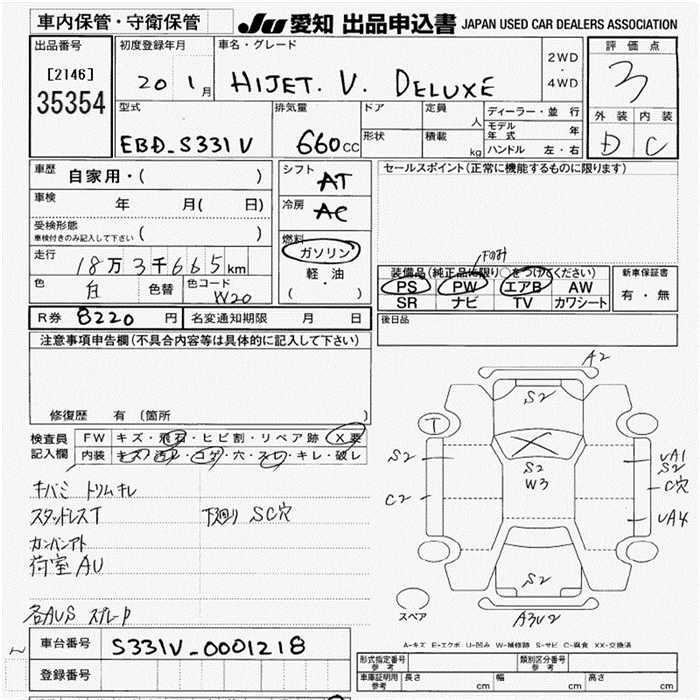 車内保管・守衛保管
JU 愛知 出品申込書 JAPAN USED CAR DEALERS ASSOCIATION
出品番号
[2146]
35354
初度登録年月
20 1月
車名・グレード
HIJET. V. DELUXE
2WD
・
4WD
評価点
3
外装 内装
D C
型式
EBD_S331V
排気量
660cc
ドア
形状
定員
人
積載
kg
ディーラー・並行
モデル年式 年
ハンドル 左・右
車歴
自家用・( )
車検
年 月( 日)
受検形態
車検付きのみ記入して下さい ( )
走行
18万3千665km
色
白
色替
色コード
W20
シフト
AT
冷房
AC
燃料
ガソリン
軽・油
・
( )
セールスポイント(正常に機能するものに限ります)
Fのみ
装備品(純正品に限り○をつけてください)
PS PW エアB AW
SR ナビ TV カワシート
新車保証書
有・無
R券 8220円
名変通知期限 月 日
後日品
注意事項申告欄(不具合内容等は具体的に記入して下さい)
修復歴 有(箇所 )
検査員記入欄
FW キズ・飛石・ヒビ割・リペア跡・X要
内装 キズ・汚れ・コゲ・穴・スレ・キレ・破レ
キバミ トリムキレ
スタッドレスT 下廻り SC穴
カンバンアト
荷室AU
各AUS スプレーP
A2
S2
T
S2
S2
W3
C2
UA1
S2
C穴
UA4
S2
A3U2
スペア
A-キズ E-エクボ U-凹み W-補修跡 S-サビ C-腐食 XX-交換済
車台番号
S331V_0001218
登録番号
形式指定番号
参考
類別区分番号
参考
車庫証明用
参考
長さ cm 幅 cm 高さ cm